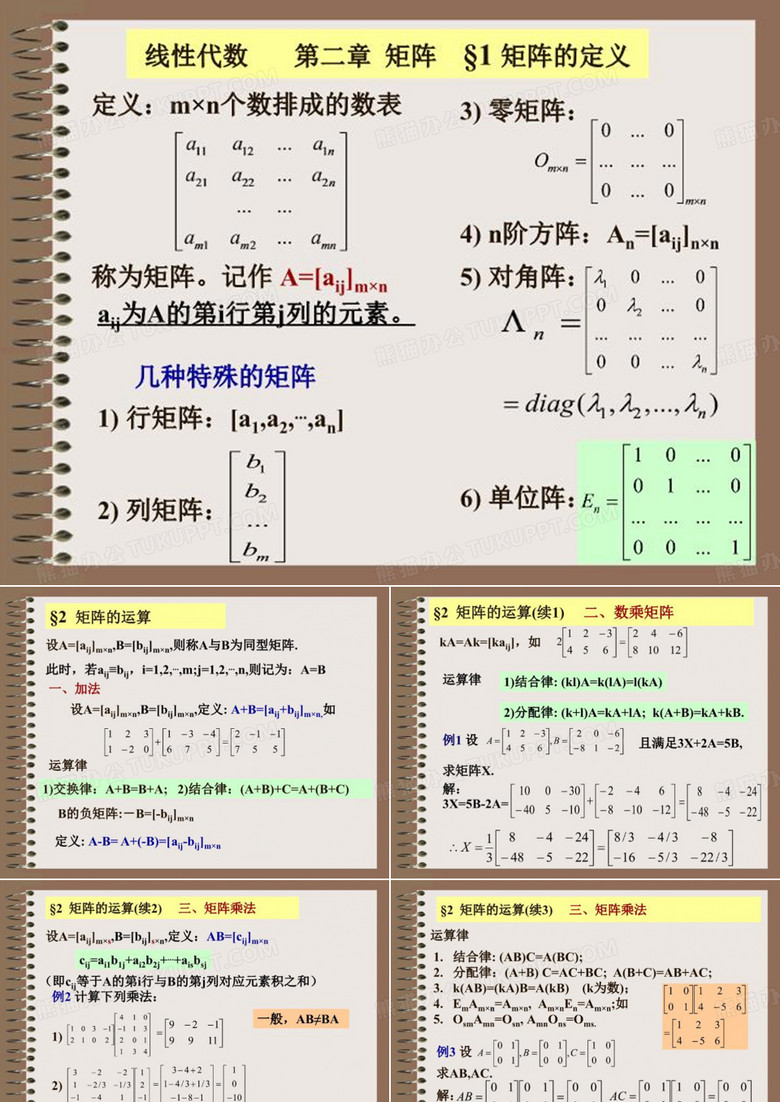 线性代数 第二章 矩阵 §1 矩阵的定义
定义：m×n个数排成的数表
a11 a12 ... a1n
a21 a22 ... a2n
... ...
am1 am2 ... amn
称为矩阵。记作 A=[aij]m×n
aij为A的第i行第j列的元素。
几种特殊的矩阵
1) 行矩阵：[a1,a2,···,an]
2) 列矩阵：
b1
b2
...
bm
3) 零矩阵：
Om×n =
0 ... 0
... ... ...
0 ... 0
m×n
4) n阶方阵：An=[aij]n×n
5) 对角阵：
Λn =
λ1 0 ... 0
0 λ2 ... 0
... ... ... ...
0 0 ... λn
= diag(λ1,λ2,...,λn)
6) 单位阵：En =
1 0 ... 0
0 1 ... 0
... ... ... ...
0 0 ... 1
§2 矩阵的运算
设A=[aij]m×n,B=[bij]m×n,则称A与B为同型矩阵.
此时，若aij=bij，i=1,2,···,m;j=1,2,···,n,则记为：A=B
一、加法
设A=[aij]m×n,B=[bij]m×n,定义: A+B=[aij+bij]m×n,如
[1 2 3]+[1 -3 -4]=[2 -1 -1]
[1 -2 0] [6 7 5] [7 5 5]
运算律
1)交换律：A+B=B+A; 2)结合律：(A+B)+C=A+(B+C)
B的负矩阵:－B=[-bij]m×n
定义: A-B= A+(-B)=[aij-bij]m×n
§2 矩阵的运算(续1) 二、数乘矩阵
kA=Ak=[kaij]，如 2[1 2 -3]=[2 4 -6]
[4 5 6] [8 10 12]
运算律 1)结合律: (kl)A=k(lA)=l(kA)
2)分配律: (k+l)A=kA+lA; k(A+B)=kA+kB.
例1 设 A=[1 2 -3],B=[2 0 -6] 且满足3X+2A=5B,
[4 5 6] [-8 1 -2]
求矩阵X.
解：
3X=5B-2A=[10 0 -30]+[-2 -4 6]=[8 -4 -24]
[-40 5 -10] [-8 -10 -12] [-48 -5 -22]
∴X=1/3[8 -4 -24]=[8/3 -4/3 -8]
[-48 -5 -22] [-16 -5/3 -22/3]
§2 矩阵的运算(续2) 三、矩阵乘法
设A=[aij]m×s,B=[bij]s×n,定义：AB=[cij]m×n
cij=ai1b1j+ai2b2j+···+aisbsj
（即cij等于A的第i行与B的第j列对应元素积之和）
例2 计算下列乘法：
一般，AB≠BA
1) [1 0 3 -1][4 1 0]=[9 -2 -1]
[2 1 0 2][-1 1 3] [9 9 11]
[2 0 1]
[1 3 4]
2) [3 -2 -2][1]=[3-4+2]=[1]
[1 -2/3 -1/3][2] [1-4/3+1/3] [0]
[-1 -4 1] [-1-8-1] [-10]
§2 矩阵的运算(续3) 三、矩阵乘法
运算律
1. 结合律: (AB)C=A(BC);
2. 分配律: (A+B) C=AC+BC; A(B+C)=AB+AC;
3. k(AB)=(kA)B=A(kB) (k为数);
4. EmAm×n=Am×n, Am×nEn=Am×n;如
5. OsmAmn=Osn, AmnOns=Oms.
[1 0][1 2 3]
[0 1][4 -5 6]
=[1 2 3]
[4 -5 6]
例3 设 A=[0 1],B=[1 0],C=[1 0]
[0 1] [0 0] [0 0]
求AB,AC.
解: AB=[0 1][0 1]=[0 0] AC=[0 1][1 0]=[0 0]